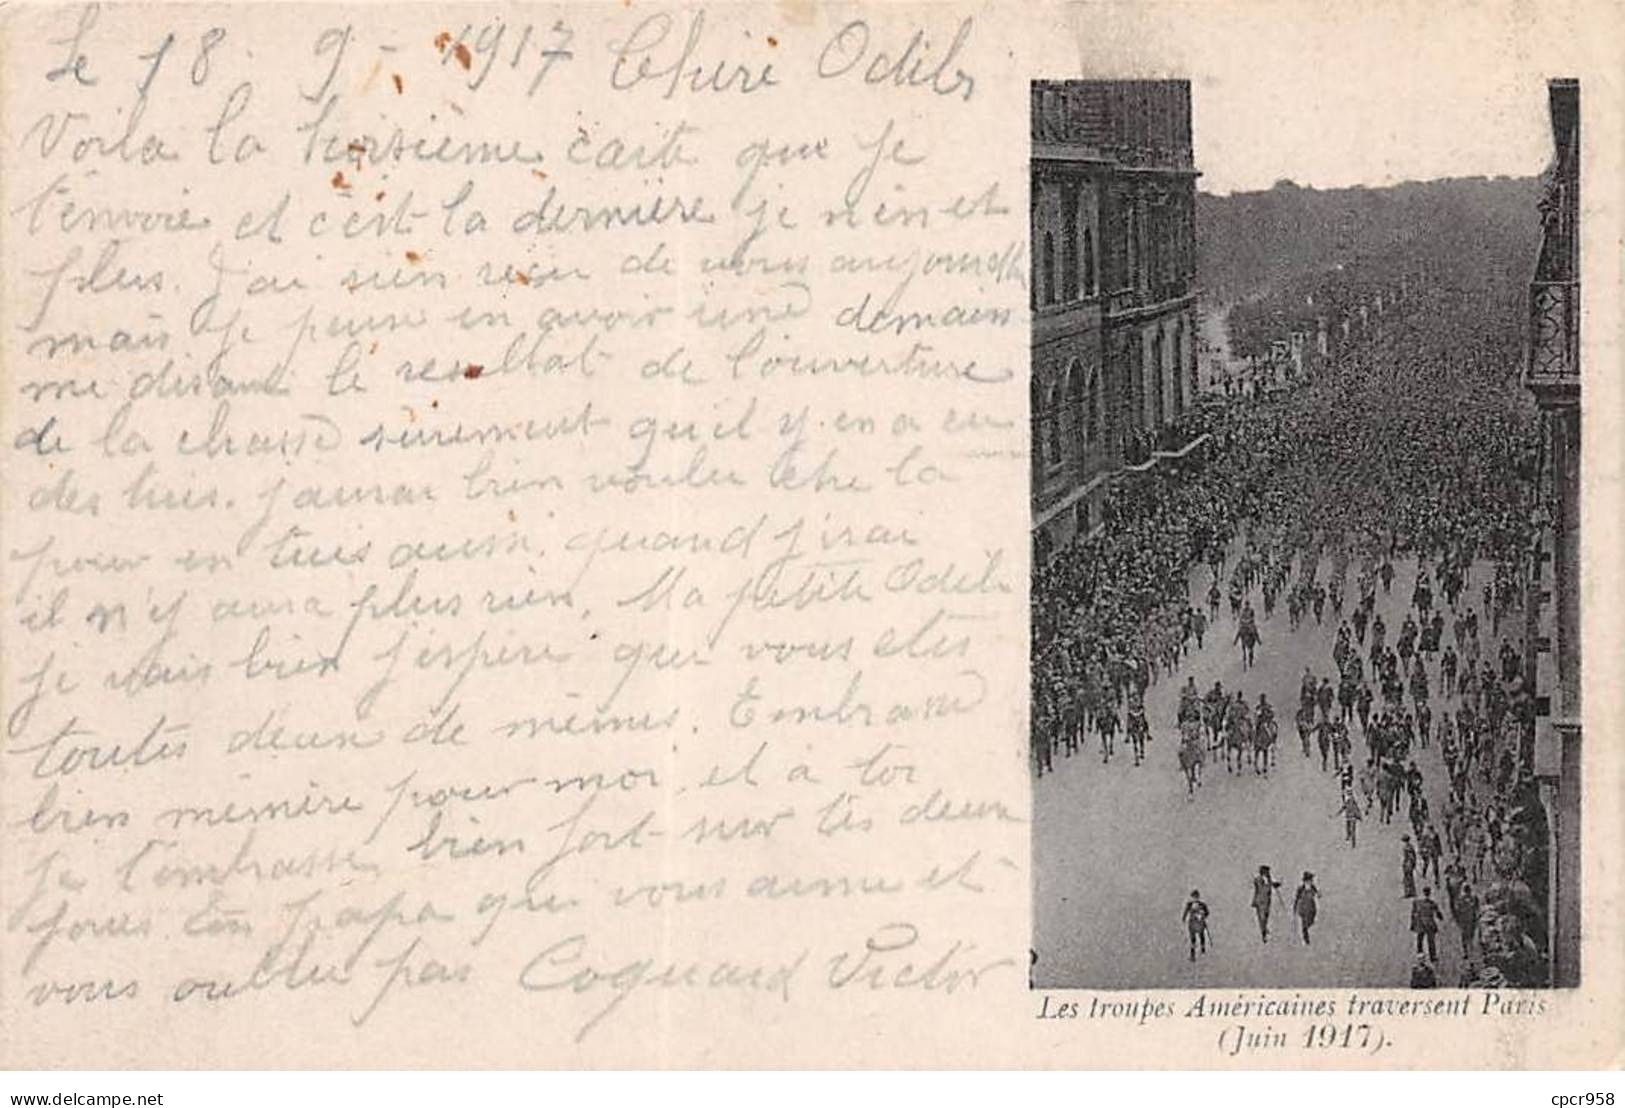 Le 18 9 - 1917 Chère Odile
Voila la troisième carte que je
t'envoie et c'est la dernière je n'en et
plus. J'ai rien reçu de vous aujourd'hui
mais je pense en avoir une demain
me disant le resultat de l'ouverture
de la chasse surement qu'il y en a eu
des tues. j'aurai bien voulu etre la
pour en tues aussi, quand j'irai
il n'y aura plus rien. Ma petite Odile
je vais bien j'espère que vous etes
toutes deux de mêmes. Embrasse
bien mémère pour moi et a toi
je t'embrasse bien fort sur tes deux
joues ton papa que vous aime et
vous oublie pas Coquard Victor
Les troupes Américaines traversent Paris
(Juin 1917).
www.delcampe.net
cpcr958